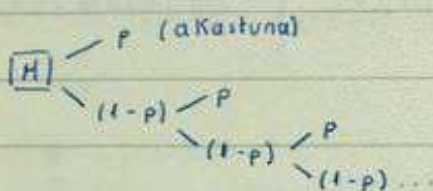 p (akastuna)
H
(1-p) p
(1-p) p
(1-p) ...